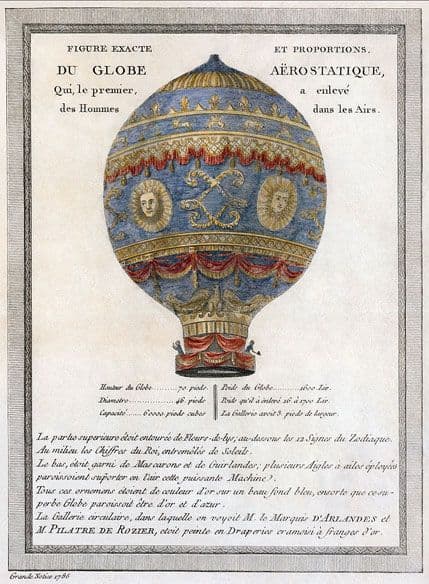 FIGURE EXACTE ET PROPORTIONS,
DU GLOBE AËROSTATIQUE,
Qui, le premier, a enlevé
des Hommes dans les Airs.
Hauteur du Globe..........70 pieds. Poids du Globe..........1600 Liv.
Diametre..........46. pieds Poids qu'il a enlevé 16 à 1700 Liv.
Capacité.....60000 pieds cubes La Gallerie avoit 3. pieds de largeur.
La partie superieure étoit entourée de Fleurs-de-lys, au-dessous les 12 Signes du Zodiaque.
Au milieu les Chiffres du Roi, entremêlés de Soleils.
Le bas, étoit garni de Mascarons et de Guirlandes; plusieurs Aigles à ailes éployées
paroissoient suporter en l'air cette puissante Machine.
Tous ces ornemens étoient de couleur d'or sur un beau fond bleu, ensorte que ce su-
perbe Globe paroissoit être d'or et d'azur.
La Gallerie circulaire, dans laquelle on voyoit M. le Marquis D'ARLANDES et
M. PILATRE DE ROZIER, etoit peinte en Draperies cramoisi à franges d'or.
1786